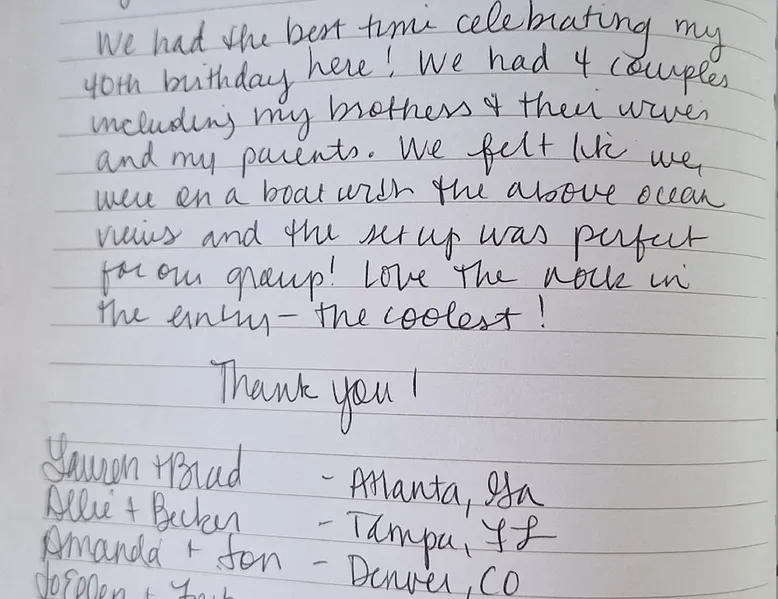 We had the best time celebrating my
40th birthday here! We had 4 couples
including my brothers & their wives
and my parents. We felt like we
were on a boat with the above ocean
views and the set up was perfect
for our group! Love the rock in
the entry - the coolest!
Thank you!
Lauren + Brad - Atlanta, Ga
Allie + Becker - Tampa, FL
Amanda + Jon - Denver, CO